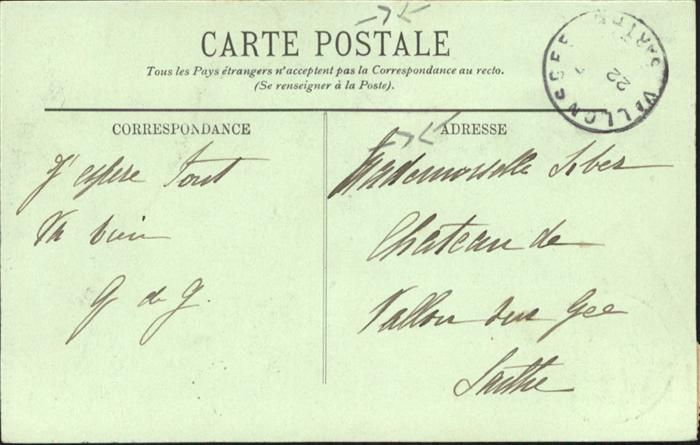 CARTE POSTALE
Tous les Pays étrangers n'acceptent pas la Correspondance au recto.
(Se renseigner à la Poste).
CORRESPONDANCE
J'espere tout
va bien
G de G.
ADRESSE
Mademoiselle
Chateau de
Vallon sur Gee
Sarthe
VALLON S GEE
SARTHE
22